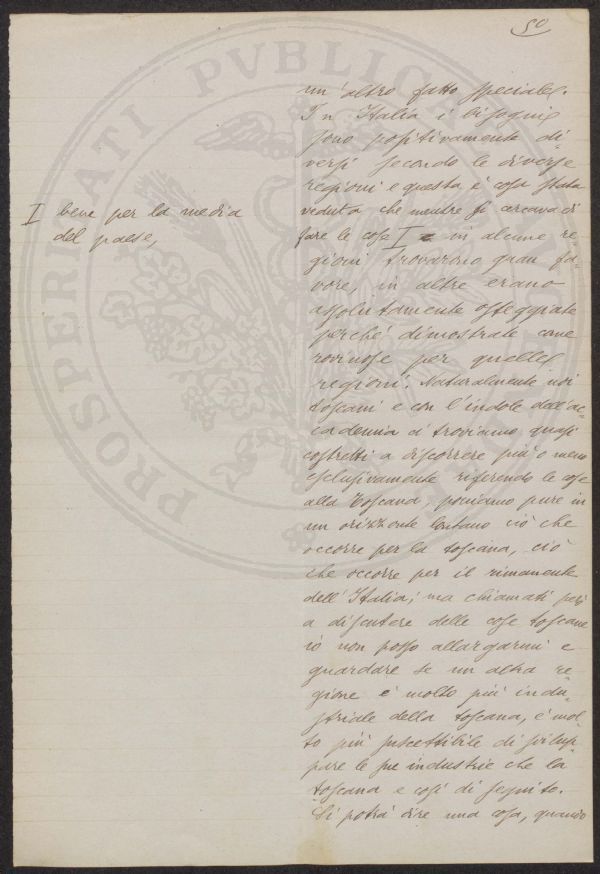 50
un'altro fatto speciale.
In Italia i bisogni
sono positivamente di-
versi secondo le diverse
regioni e questa è cosa stata
veduta che mentre si cercava di
fare le cose I in alcune re-
gioni trovarono gran fa-
vore, in altre erano
assolutamente osteggiate
perché dimostrate come
rovinose per quelle
regioni. Naturalmente noi
toscani e con l'indole dell'ac-
cademia ci troviamo quasi
costretti a discorrere più o meno
esclusivamente riferendo le cose
alla Toscana, poniamo pure in
un orizzonte lontano ciò che
occorre per la toscana, ciò
che occorre per il rimanente
dell'Italia; ma chiamati però
a discutere delle cose toscane
io non posso allargarmi e
guardare se un altra re-
gione è molto più indu-
striale della toscana, è mol-
to più suscettibile di svilup-
pare le sue industrie che la
toscana e così di seguito.
Si potrà dire una cosa, quando
I bene per la media
del paese,
PROSPERITATI PVBLICAE